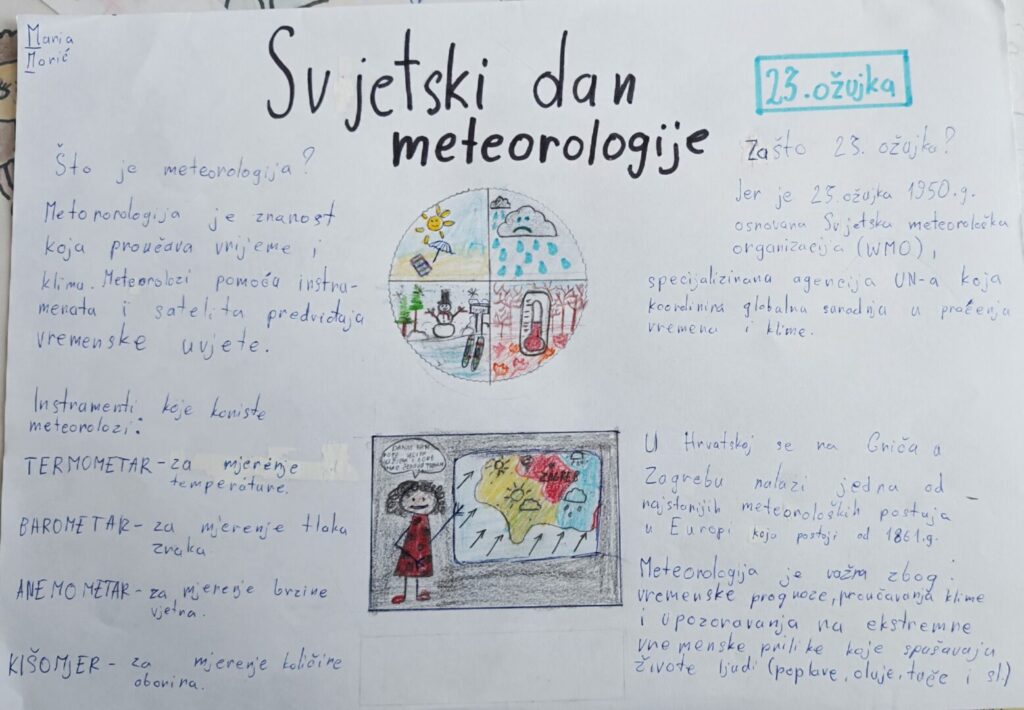 Maria
Morić
Svjetski dan
meteorologije
23. ožujka
Što je meteorologija?
Metororologija je znanost
koja proučava vrijeme i
klimu. Meteorolozi pomoću instru-
menata i satelita predviđaju
vremenske uvjete.
Instrumenti koje koriste
meteorolozi:
TERMOMETAR - za mjerenje
temperature.
BAROMETAR - za mjerenje tlaka
zraka.
ANEMOMETAR - za mjerenje brzine
vjetra.
KIŠOMJER - za mjerenje količine
oborina.
ZAGREB
Zašto 23. ožujka?
Jer je 23. ožujka 1950. g.
osnovana Svjetska meteorološka
organizacija (WMO),
specijalizirana agencija UN-a koja
koordinira globalnu suradnju u praćenju
vremena i klime.
U Hrvatskoj se na Griču u
Zagrebu nalazi jedna od
najstarijih meteoroloških postaja
u Europi koja postoji od 1861.g.
Meteorologija je važna zbog:
vremenske prognoze, proučavanja klime
i upozoravanja na ekstremne
vremenske prilike koje spašavaju
živote ljudi (poplave, oluje, tuče i sl.)